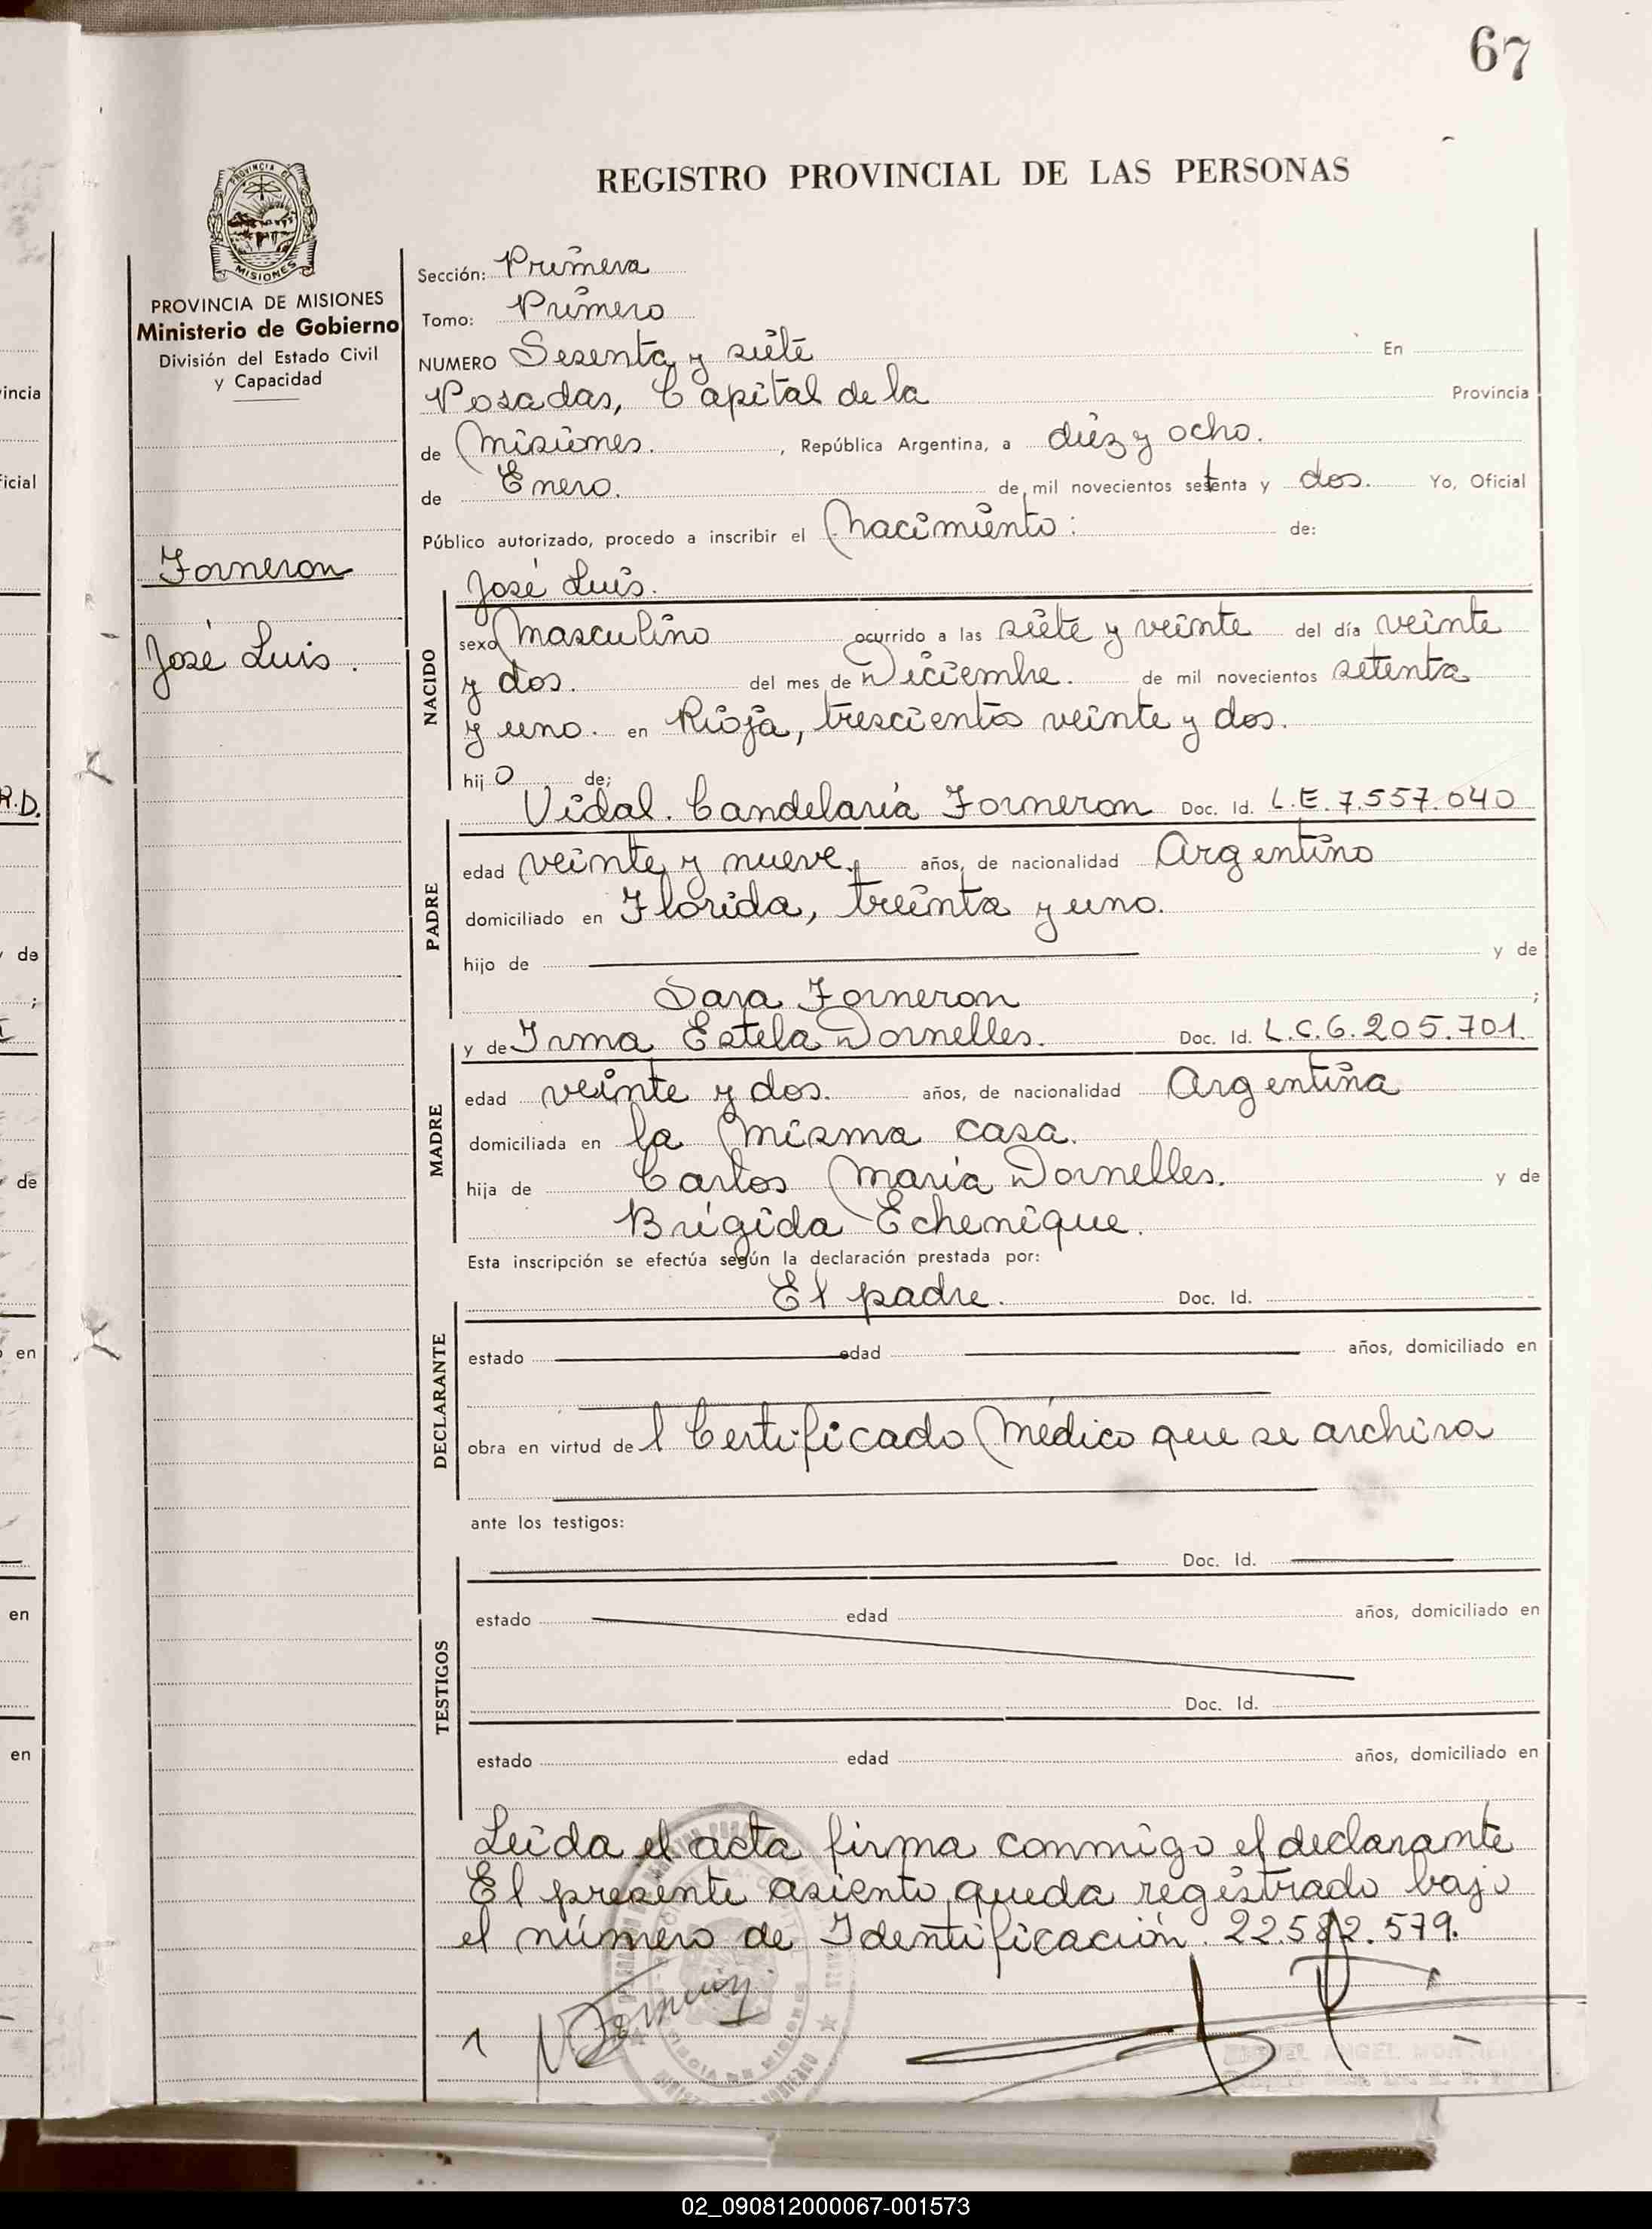 67
REGISTRO PROVINCIAL DE LAS PERSONAS
PROVINCIA DE
MISIONES
PROVINCIA DE MISIONES
Ministerio de Gobierno
División del Estado Civil
y Capacidad
Forneron
José Luis.
Sección: Primera
Tomo: Primero
NUMERO Sesenta y siete En
Posadas, Capital de la Provincia
de Misiones. , República Argentina, a diez y ocho.
de Enero. de mil novecientos setenta y dos. Yo, Oficial
Público autorizado, procedo a inscribir el Nacimiento: de:
José Luis.
NACIDO
sexo Masculino ocurrido a las siete y veinte del día veinte
y dos. del mes de Diciembre. de mil novecientos setenta
y uno. en Rioja, trescientos veinte y dos.
hijo de;
Vidal. Candelaria Forneron Doc. Id. L.E. 7.557.040
PADRE
edad veinte y nueve. años, de nacionalidad Argentino
domiciliado en Florida, treinta y uno.
hijo de y de
Sara Forneron ;
y de Irma Estela Dornelles. Doc. Id. L.C. 6.205.701.
MADRE
edad veinte y dos. años, de nacionalidad Argentina
domiciliada en la misma casa.
hija de Carlos María Dornelles. y de
Brígida Echenique.
Esta inscripción se efectúa según la declaración prestada por:
El padre. Doc. Id.
DECLARANTE
estado edad años, domiciliado en
obra en virtud del Certificado Médico que se archiva
ante los testigos:
Doc. Id.
TESTIGOS
estado edad años, domiciliado en
Doc. Id.
estado edad años, domiciliado en
Leida el acta firma conmigo el declarante
El presente asiento queda registrado bajo
el número de Identificación. 22.582.579.
vincia
icial
R.D.
de
;
de
en
en
en
02_090812000067-001573